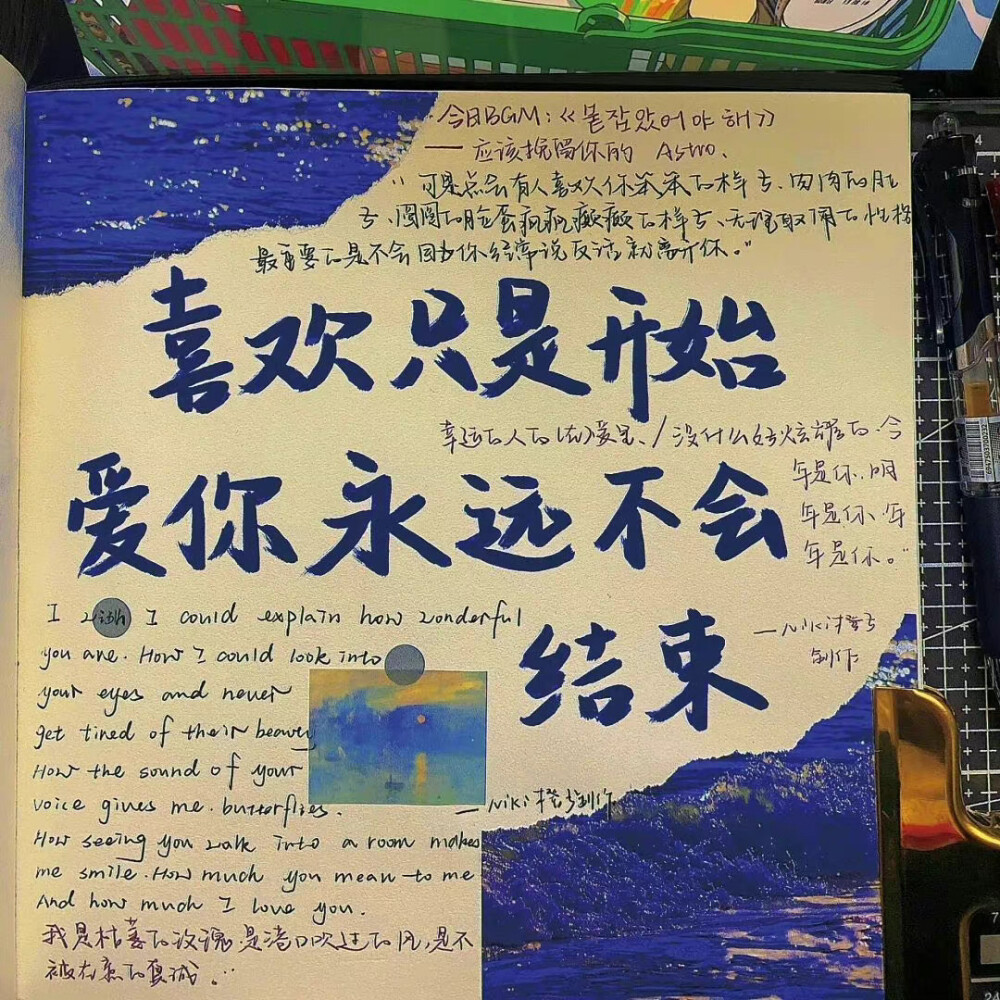 今日BGM:《붙잡았어야 해》
— 应该挽留你的 Astro.
"可是总会有人喜欢你笨笨的样子、肉肉的肚
子、圆圆的脸蛋疯疯癫癫的样子、无理取闹的性格
最重要的是不会因为你经常说反话就离开你。"
喜欢只是开始
幸运的人的 / 没什么好炫耀的.今
年是你.明
年是你.年
年是你。"
爱你永远不会
结束
— Niki橙子
创作
I wish I could explain how wonderful
you are. How I could look into
your eyes and never
get tired of their beauty
How the sound of your
voice gives me. butterflies.
— Niki橙子创作
How seeing you walk into a room makes
me smile. How much you mean to me
And how much I love you.
我是枯萎的玫瑰.是港口吹过的风,是不
被在意的真诚."